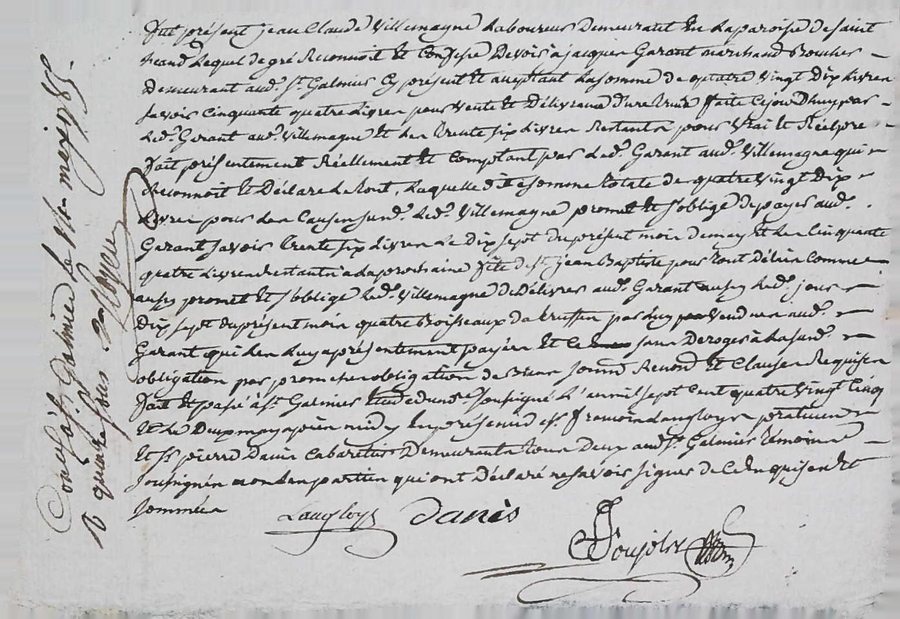 fut présent jean Claude Villemagne Laboureur Demeurant En La paroisse de Saint
heand Lequel de gré Reconnoit Et Confesse Devoir à jacques Garant marchand Boucher
demeurant aud. St. Galmier Cy présent Et aceptant La somme de quatre vingt Dix Livres
savoir Cinquante quatre Livres pour vente Et Délivrance d'une faite Cejourd'huy par
Led. Garant aud. Villemagne Et Les Trente six Livres Restantes pour vrai Et Réel pret
fait présentement Réellement Et Comptant par Led. Garant aud. Villemagne qui
Reconnoit Et Déclare Laquelle dite somme totale de quatre vingt Dix
Livres pour Les Causes susd. Led. Villemagne promet Et s'oblige De payer aud.
Garant savoir Trente six Livres Le Dix sept du présent mois de may Et Les Cinquante
quatre Livres Restantes à La prochaine fête de St. jean Baptiste pour tout Délai Comme
aussy promet Et s'oblige Led. Villemagne de Délivrer aud. Garant aussy Led. jour
Dix sept du présent mois quatre Boisseaux de par Luy vendues aud.
Garant qui Les Luy a présentement payées Et Ce sans Deroger à La susd.
obligation par promesse obligation de Biens Renond Et Clauses Requises
fait Et passé à St. Galmier Etude du no.re soussigné L'an mil sept Cent quatre vingt Cinq
Et Le Deux may après midy En présence de sr. Langloys praticien
Et Sr. pierre Danis Cabaretier Demeurants tous Deux aud. St. Galmier témoins
soussignés non Les parties qui ont Déclaré ne savoir signer de Ce Enquises Et
sommées
Langloys Danis
Ponjols
St Galmier le mai 1785
quinze sous